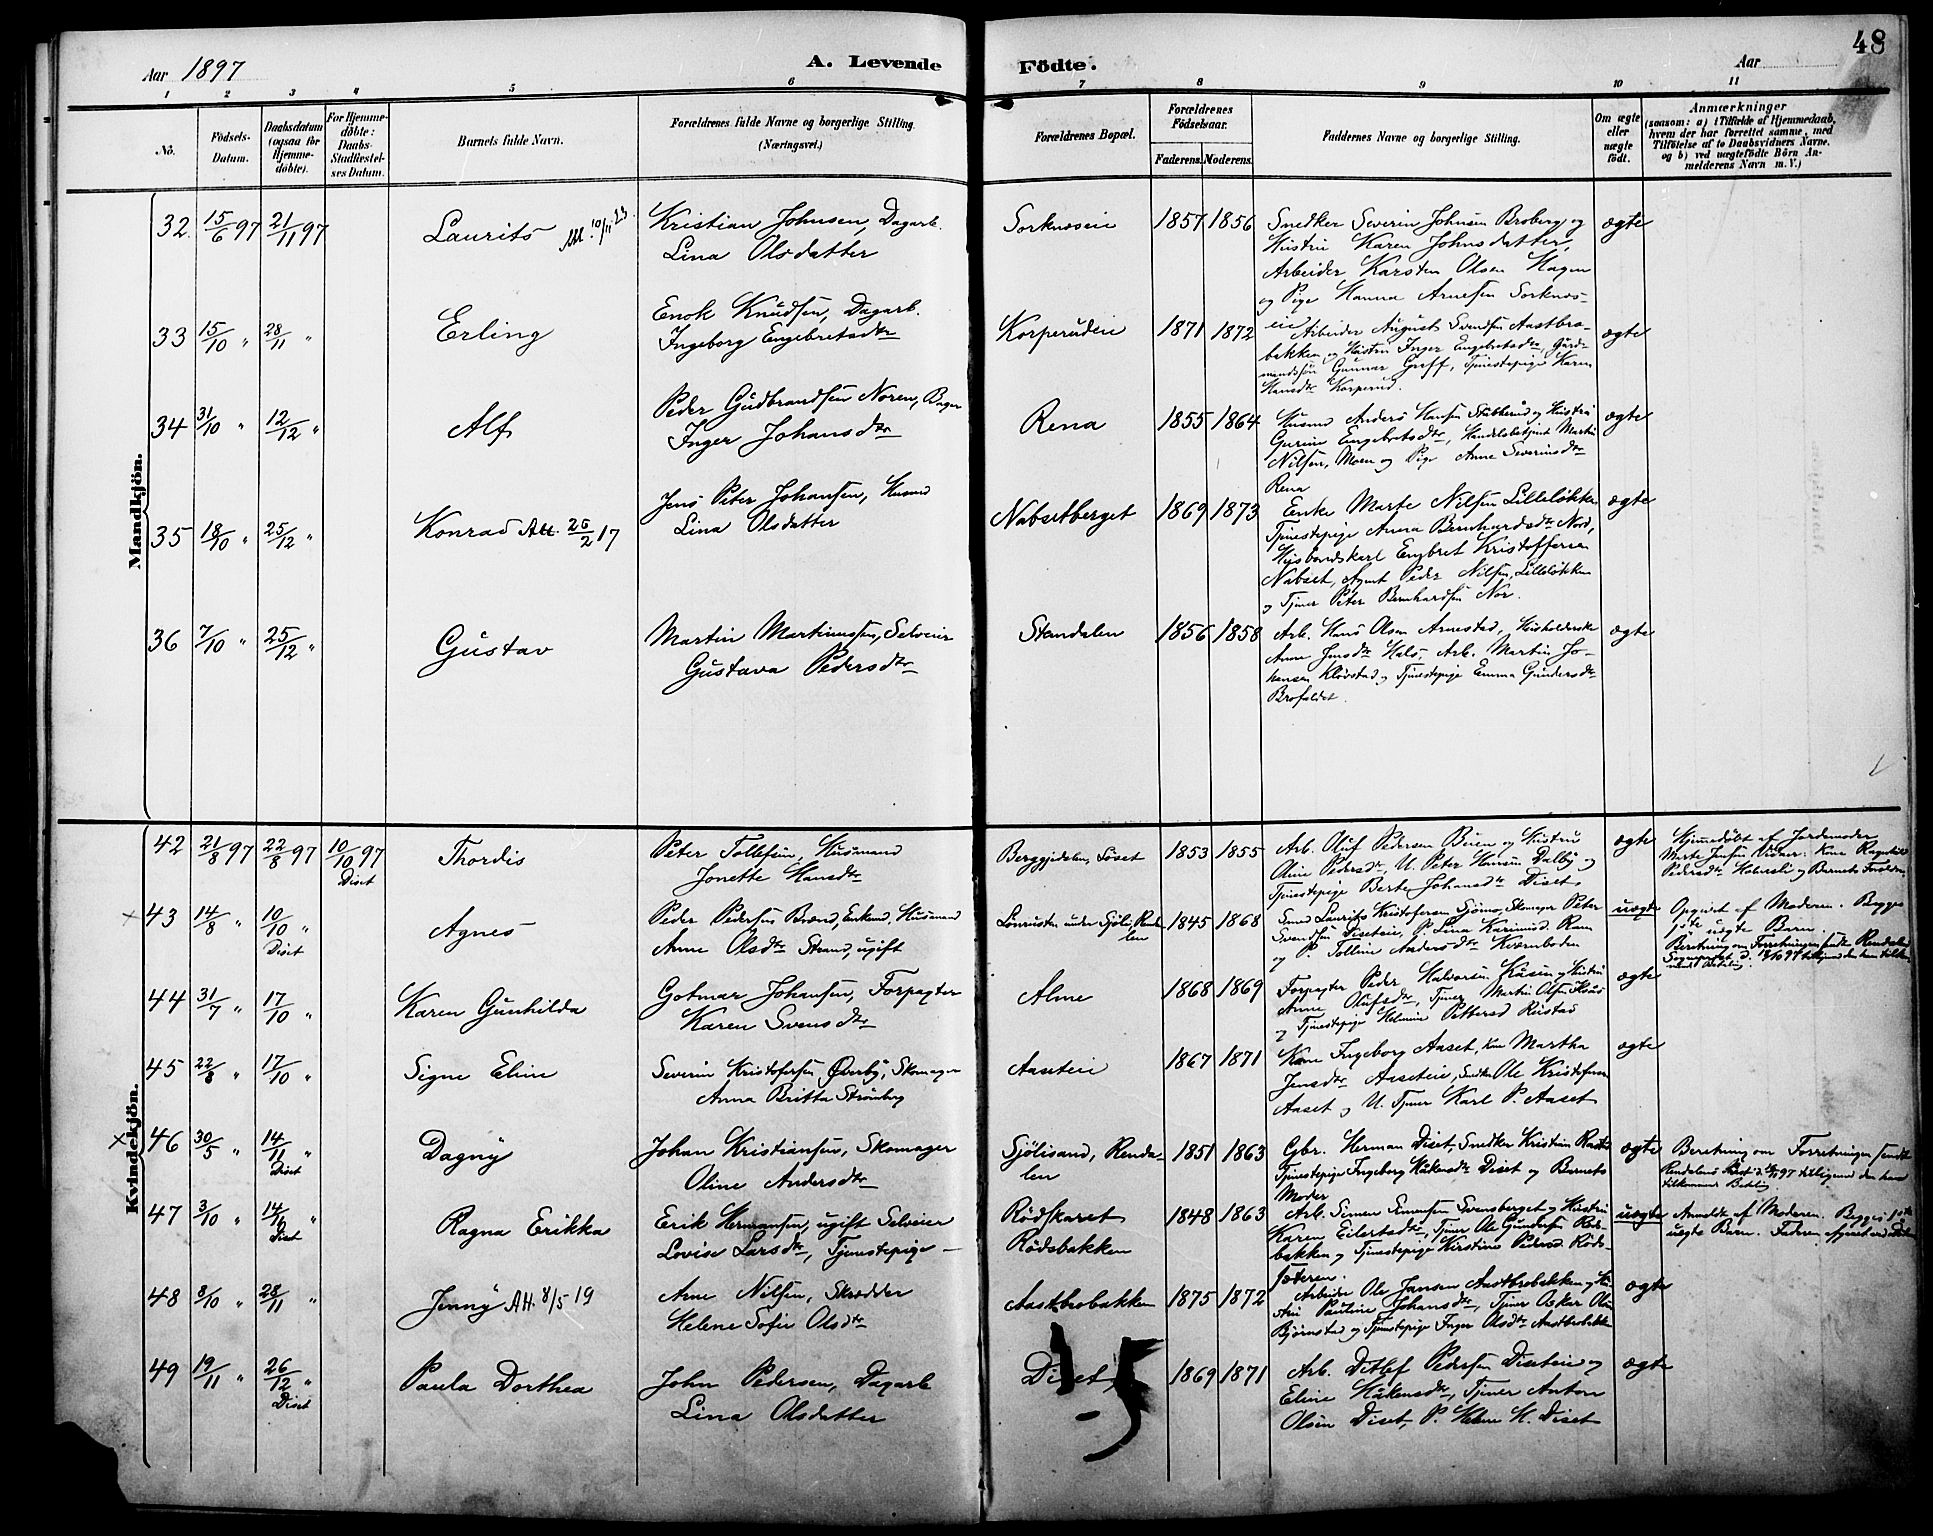 48
Aar 1897
A. Levende Födte.
Aar
1 2 3 4 5 6 7 8 9 10 11
No.
Födsels-Datum.
Daabsdatum (ogsaa for Hjemme-døbte).
For Hjemme-døbte: Daabs-Stadfæstel-ses Datum.
Barnets fulde Navn.
Forældrenes fulde Navne og borgerlige Stilling.
(Næringsvei.)
Forældrenes Bopæl.
Forældrenes Födselsaar.
Faderens. Moderens.
Faddernes Navne og borgerlige Stilling.
Om ægte eller uægte født.
Anmærkninger
(saasom: a) i Tilfælde af Hjemmedaab,
hvem der har forrettet samme, med
Tilföielse af to Daabsvidners Navne.
og b) ved uægtefödte Börn An-
melderens Navn m. V.)
Mandkjön.
32. 15/6 97 21/11 97 Laurits Att. 10/11 23. Kristian Johnsen, Dagarb.
Lina Olsdatter
Sorknæseie 1857 1856
Snedker Severin Johnsen Broberg og
Hustru Karen Johnsdatter,
Arbeider Karsten Olsen Hagen
og Pige Hanna Arnesen Sorknæs-
eie
ægte
33 15/10 " 28/11 " Erling Enok Knudsen, Dagarb.
Ingeborg Engebretsdtr
Korperudeie 1871 1872
Arbeider August Svendsen Aastbro-
bakken og Hustru Inger Engebretsdtr, Gård-
mandssøn Gunnar Groff, Tjenestepige Karen
Hansdtr Korperud.
ægte
34 31/10 " 12/12 " Alf Peder Gudbrandsen Noren, Bager
Inger Johansdtr
Rena 1855 1864
Husmd Anders Hansen Stubberud og Hustru
Gurine Engebretsdtr, Handelsbetjent Martin
Nilsen, Moen og Pige Anne Severinsdtr
Rena
ægte
35 18/10 " 25/12 " Konrad Att. 26/2 17 Jens Peter Johansen, Husmd
Lina Olsdatter
Nabsetberget 1869 1873
Enke Marte Nilsen Lilleløkken
Tjenestepige Anna Bernhardsdtr Nord,
Husbondskarl Engbret Kristoffersen
Nabset, Agent Peder Nilsen, Lilleløkken
og Tjener Peter Bernhardsen Nor.
ægte
36 7/10 " 25/12 " Gustav Martin Martinussen, Selveier
Gustava Pedersdtr
Stendalen 1856 1858
Arb. Hans Olsen Arnestad, Husholderske
Anne Jensdtr Hals, Arb. Martin Jo-
hansen Kløvstad og Tjenestepige Emma Gundersdtr
Brofaldet.
ægte
Kvindekjön.
42 21/8 97 22/8 97 10/10 97 Diset Thordis Peter Tollefsen, Husmand
Jonette Hansdtr
Berggjdalen, Löset 1853 1855
Arb. Oluf Pedersen Buen og Hustru
Oline Pedersdtr, U. Peter Hansen Dalby og
Tjenestepige Berte Johansdtr Diset
ægte
Hjemmedøbt af Jordemoder
Marte Jensen, Vidner: Kone Ragnhild
Pedersdtr Halvsli og Barnets Forældre
43 14/8 " 10/10 " Diset Agnes Peder Pedersen Brænd, Enkemd. Husmand
Anne Olsdtr Strand, ugift
Lonrusten under Sjöli, Renda-
len
1845 1868
Smed Laurits Kristofersen Sjömo, Skomager Peter
Svendsen Diseteie, P. Lina Karinusd. Ram
og P. Tolline Andersdtr Kværnboden
uægte
Opgivet af Moderen. Begges
1ste uægte Barn.
Beretning om Forretningen sendt Rendalens
44 31/7 " 17/10 " Karen Gunhilda Gotmar Johansen, Forpagter
Karen Svensdtr
Alme 1868 1869
Forpagter Peder Halvorsen Kåsen og Hustru
Anne Olufsdtr, Tjener Martin Olsen
og Tjenestepige Helmine Pettersd Rustad
ægte
45 22/8 " 17/10 " Signe Eline Severin Kristofersen Øverby, Skomager
Anna Britta Strömberg
Aaseteie 1867 1871
Kone Ingeborg Aaset, Kone Martha
Jensdtr Aaseteie, Snedker Ole Kristofersen
Aaset og U. Tjener Karl P. Aaset
ægte
46 30/5 " 14/11 " Diset Dagny Johan Kristiansen, Skomager
Oline Andersdtr
Sjölisand, Renda-
len
1851 1863
Gbr. Herman Diset, Snedker Kristian Rasta
Tjenestepige Ingeborg Håkensdtr Diset og Barnets
Moder
ægte
Beretning om Forretningen sendt
Rendalens Præst
47 3/10 " 14/11 " Diset Ragna Erikka Erik Hermansen, ugift Selveier
Lovise Larsdtr, Tjenestepige —
Rödskaret
Rödsbakken
1848 1863
Arb. Simen Simensen Svensberget og Hustru
Karen Eilertsdtr, Tjener Ole Gundersen Röds-
bakken og Tjenestepige Kirstine Pedersd. Röds-
sæteren.
uægte
Anmeldt af Moderen. Begges 1ste
uægte Barn.
48 8/10 " 28/11 " Jenny Att. 8/5 19 Arne Nilsen, Skrædder
Helene Sofie Olsdtr
Aastbrobakken 1875 1872
Arbeider Ole Jansen Aastbrobakken og Hu-
stru Pauline Johansdtr, Tjener Oskar Olsen
Bjørnstad og Tjenestepige Inger Olsdtr Aastbrobakken
ægte
49 19/11 " 26/12 " Diset Paula Dorthea John Pedersen, Dagarb
Lina Olsdatter
Diset 1869 1871
Arb. Ditlef Pedersen Diseteie og
Eline Håkensdtr, Tjener Anton
Olsen Diset, P. Helene H. Diset
ægte